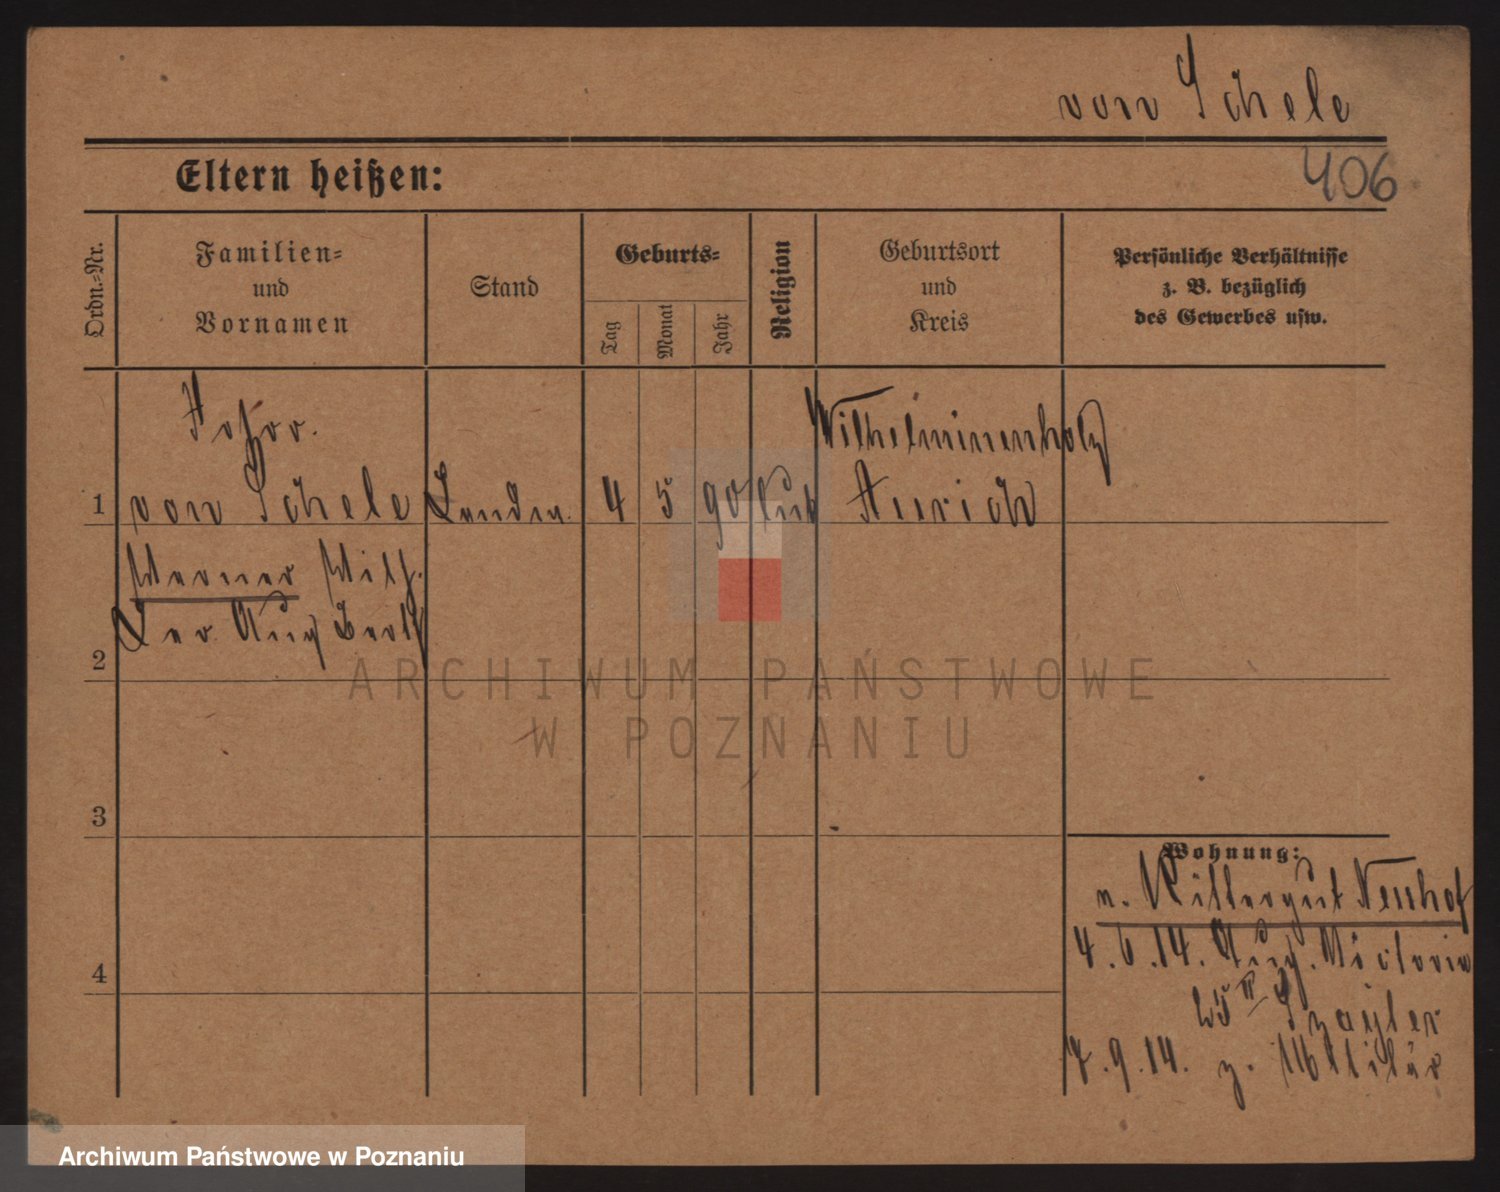 von Schele
Eltern heißen:
406
Ordn.=Nr.
Familien=
und
Vornamen
Stand
Geburts=
Tag
Monat
Jahr
Religion
Geburtsort
und
Kreis
Persönliche Verhältnisse
z. B. bezüglich
des Gewerbes usw.
Wilhelminenholz
1
von Schele
4
5
90
Aurich
Werner Wilh.
Aug
2
ARCHIWUM PAŃSTWOWE
W POZNANIU
3
Wohnung:
n. Rittergut Neuhof
4
4.6.14. Aug. Victoria
25 II
7.9.14. z. Militär
Archiwum Państwowe w Poznaniu